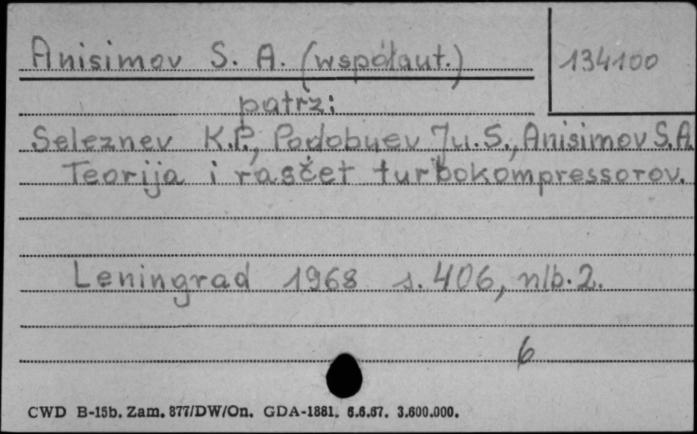 Anisimov S. A. (współaut.)
134100
patrz:
Seleznev K.P., Podobuev Ju.S., Anisimov S.A.
Teorija i rasčet turbokompressorov.
Leningrad 1968 s. 406, nlb. 2.
6
CWD B-15b. Zam. 877/DW/On. GDA-1881. 6.6.67. 3.600.000.